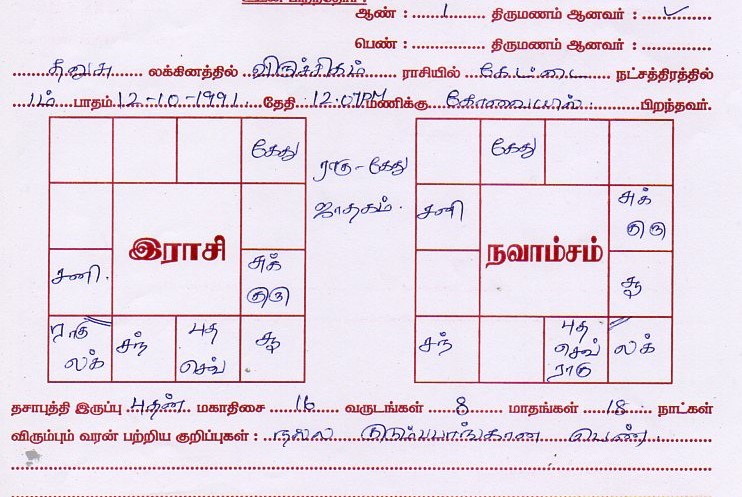 ஆண் : ......1...... திருமணம் ஆனவர் : ......✓......
பெண் : ............ திருமணம் ஆனவர் : ............
தனுசு லக்கினத்தில் விருச்சிகம் ராசியில் கேட்டை நட்சத்திரத்தில்
1ம் பாதம் 12-10-1991 தேதி 12.07PM மணிக்கு கோவையில் பிறந்தவர்.
கேது
ராகு - கேது
ஜாதகம்.
இராசி
சனி.
சுக்
குரு
ராகு
லக்
சந்
புத
செவ்
சூ
கேது
சனி
சுக்
குரு
நவாம்சம்
சூ
சந்
புத
செவ்
ராகு
லக்
தசாபுத்தி இருப்பு புதன் மகாதிசை 16 வருடங்கள் 8 மாதங்கள் 18 நாட்கள்
விரும்பும் வரன் பற்றிய குறிப்புகள் : நல்ல குடும்பபாங்கான பெண்.